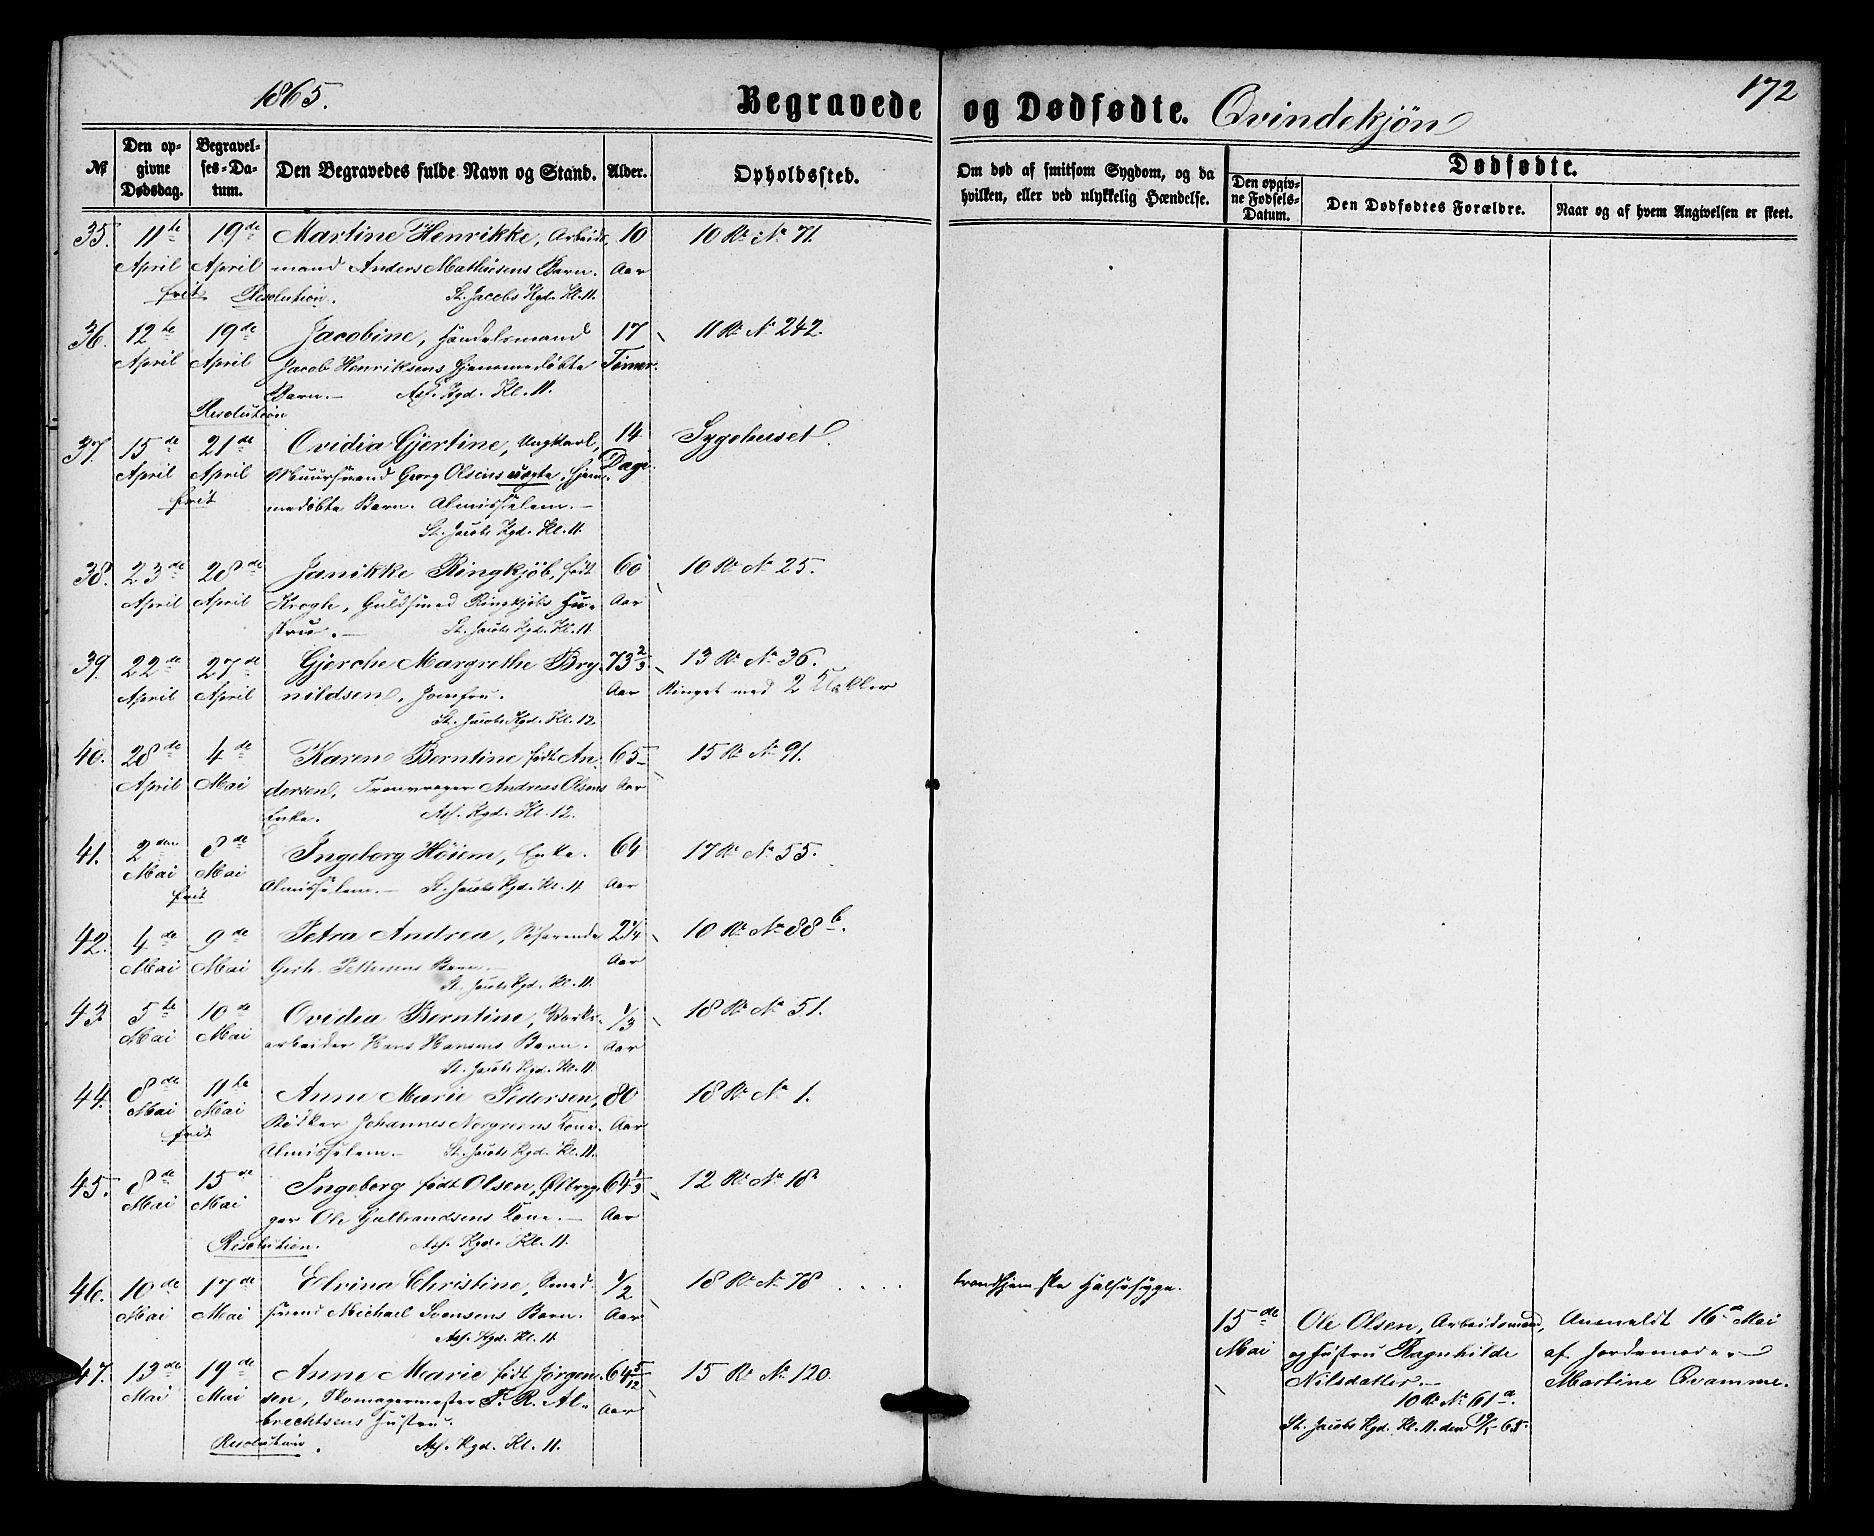 1865.
Begravede og Dødfødte. Qvindekjøn
172
№
Den opgivne Dødsdag.
Begravelses-Datum.
Den Begravedes fulde Navn og Stand.
Alder.
Opholdssted.
Om død af smitsom Sygdom, og da hvilken, eller ved ulykkelig Hændelse.
Dødfødte.
Den opgivne Fødsels-Datum.
Den Dødfødtes Forældre.
Naar og af hvem Angivelsen er skeet.
35. 11te 19de Martine Henrikke, Arbeids- 10 10 R. N. 71.
April April mand Anders Mathisens Barn. Aar
frit Resolution. St. Jacobs Kgd. Kl. 11.
36. 12te 19de Jacobine, Handelsmand 17 11 R. N. 242.
April April Jacob Henriksens hjemmedøbte Timer.
Barn. Ass. Kgd. Kl. 11.
Resolution
37. 15de 21de Ovidia Gjertine, Ungkarl, 14 Sygehuset.
April April Muursvend Georg Olsens uægte, hjem- Dage.
frit medøbte Barn. Almisselem.
St. Jacobs Kgd. Kl. 11.
38. 23de 28de Janikke Ringkjøb, født 60 10 R. N. 25.
April April Krogh, Guldsmed Ringkjøbs Hu- Aar
stru. St. Jacobs Kgd. Kl. 11.
39. 22de 27de Gjerche Margrethe Bry- 73 2/3 13 R. N. 36.
April April nildsen, Jomfru. Aar Ringet med 2 Klokker
St. Jacobs Kgd. Kl. 12.
40. 28de 4de Karen Berntine født An- 65 15 R. N. 91.
April Mai dersen, Tranvrager Andreas Olsens Aar
Enke. Ass. Kgd. Kl. 12.
41. 2den 8de Ingeborg Høiem, Enke. 64 17 R. N. 55.
Mai Mai Almisselem. St. Jacobs Kgd. Kl. 11 Aar
frit
42. 4de 9de Petra Andrea, Søfarende 2 1/4 10 R. N. 88 b.
Mai Mai Gerh. Pettersens Barn. Aar
St. Jacobs Kgd. Kl. 11.
43. 5te 10de Ovidia Berntine, Værks- 1/3 18 R. N. 51.
Mai Mai arbeider Hans Hansens Barn. Aar
St. Jacobs Kgd. Kl. 11.
44. 8de 11te Anne Marie Pedersen, 80 18 R. N. 1.
Mai Mai Bødker Johannes Norgreens Kone. Aar
frit Almisselem. St. Jacobs Kgd. Kl. 11.
45. 8de 15de Ingeborg født Olsen, Ølbryg- 64 1/3 12 R. N. 18
Mai Mai ger Ole Gulbrandsens Kone. Aar
Resolution. Ass. Kgd. Kl. 11.
46. 10de 17de Elvina Christine, Smed- 1/2 18 R. N. 78 . . . trondhjemske Halssyge.
Mai Mai svend Michael Svensens Barn. Aar
Ass. Kgd. Kl. 11.
47. 13de 19de Anne Marie født Jørgen- 64 5/12 15 R. N. 120.
Mai Mai sen, Skomagermester F. R. Al- Aar
brechtsens Hustru.
Resolution. Ass. Kgd. Kl. 11.
15de Ole Olsen, Arbeidsmand, Anmeldt 16de Mai
Mai og Hustru Ragnhilde af Jordemoder
Nilsdatter. Martine Qvamme.
10 R. N. 61 a.
St. Jacobs Kgd. Kl. 11. den 19/5 65.